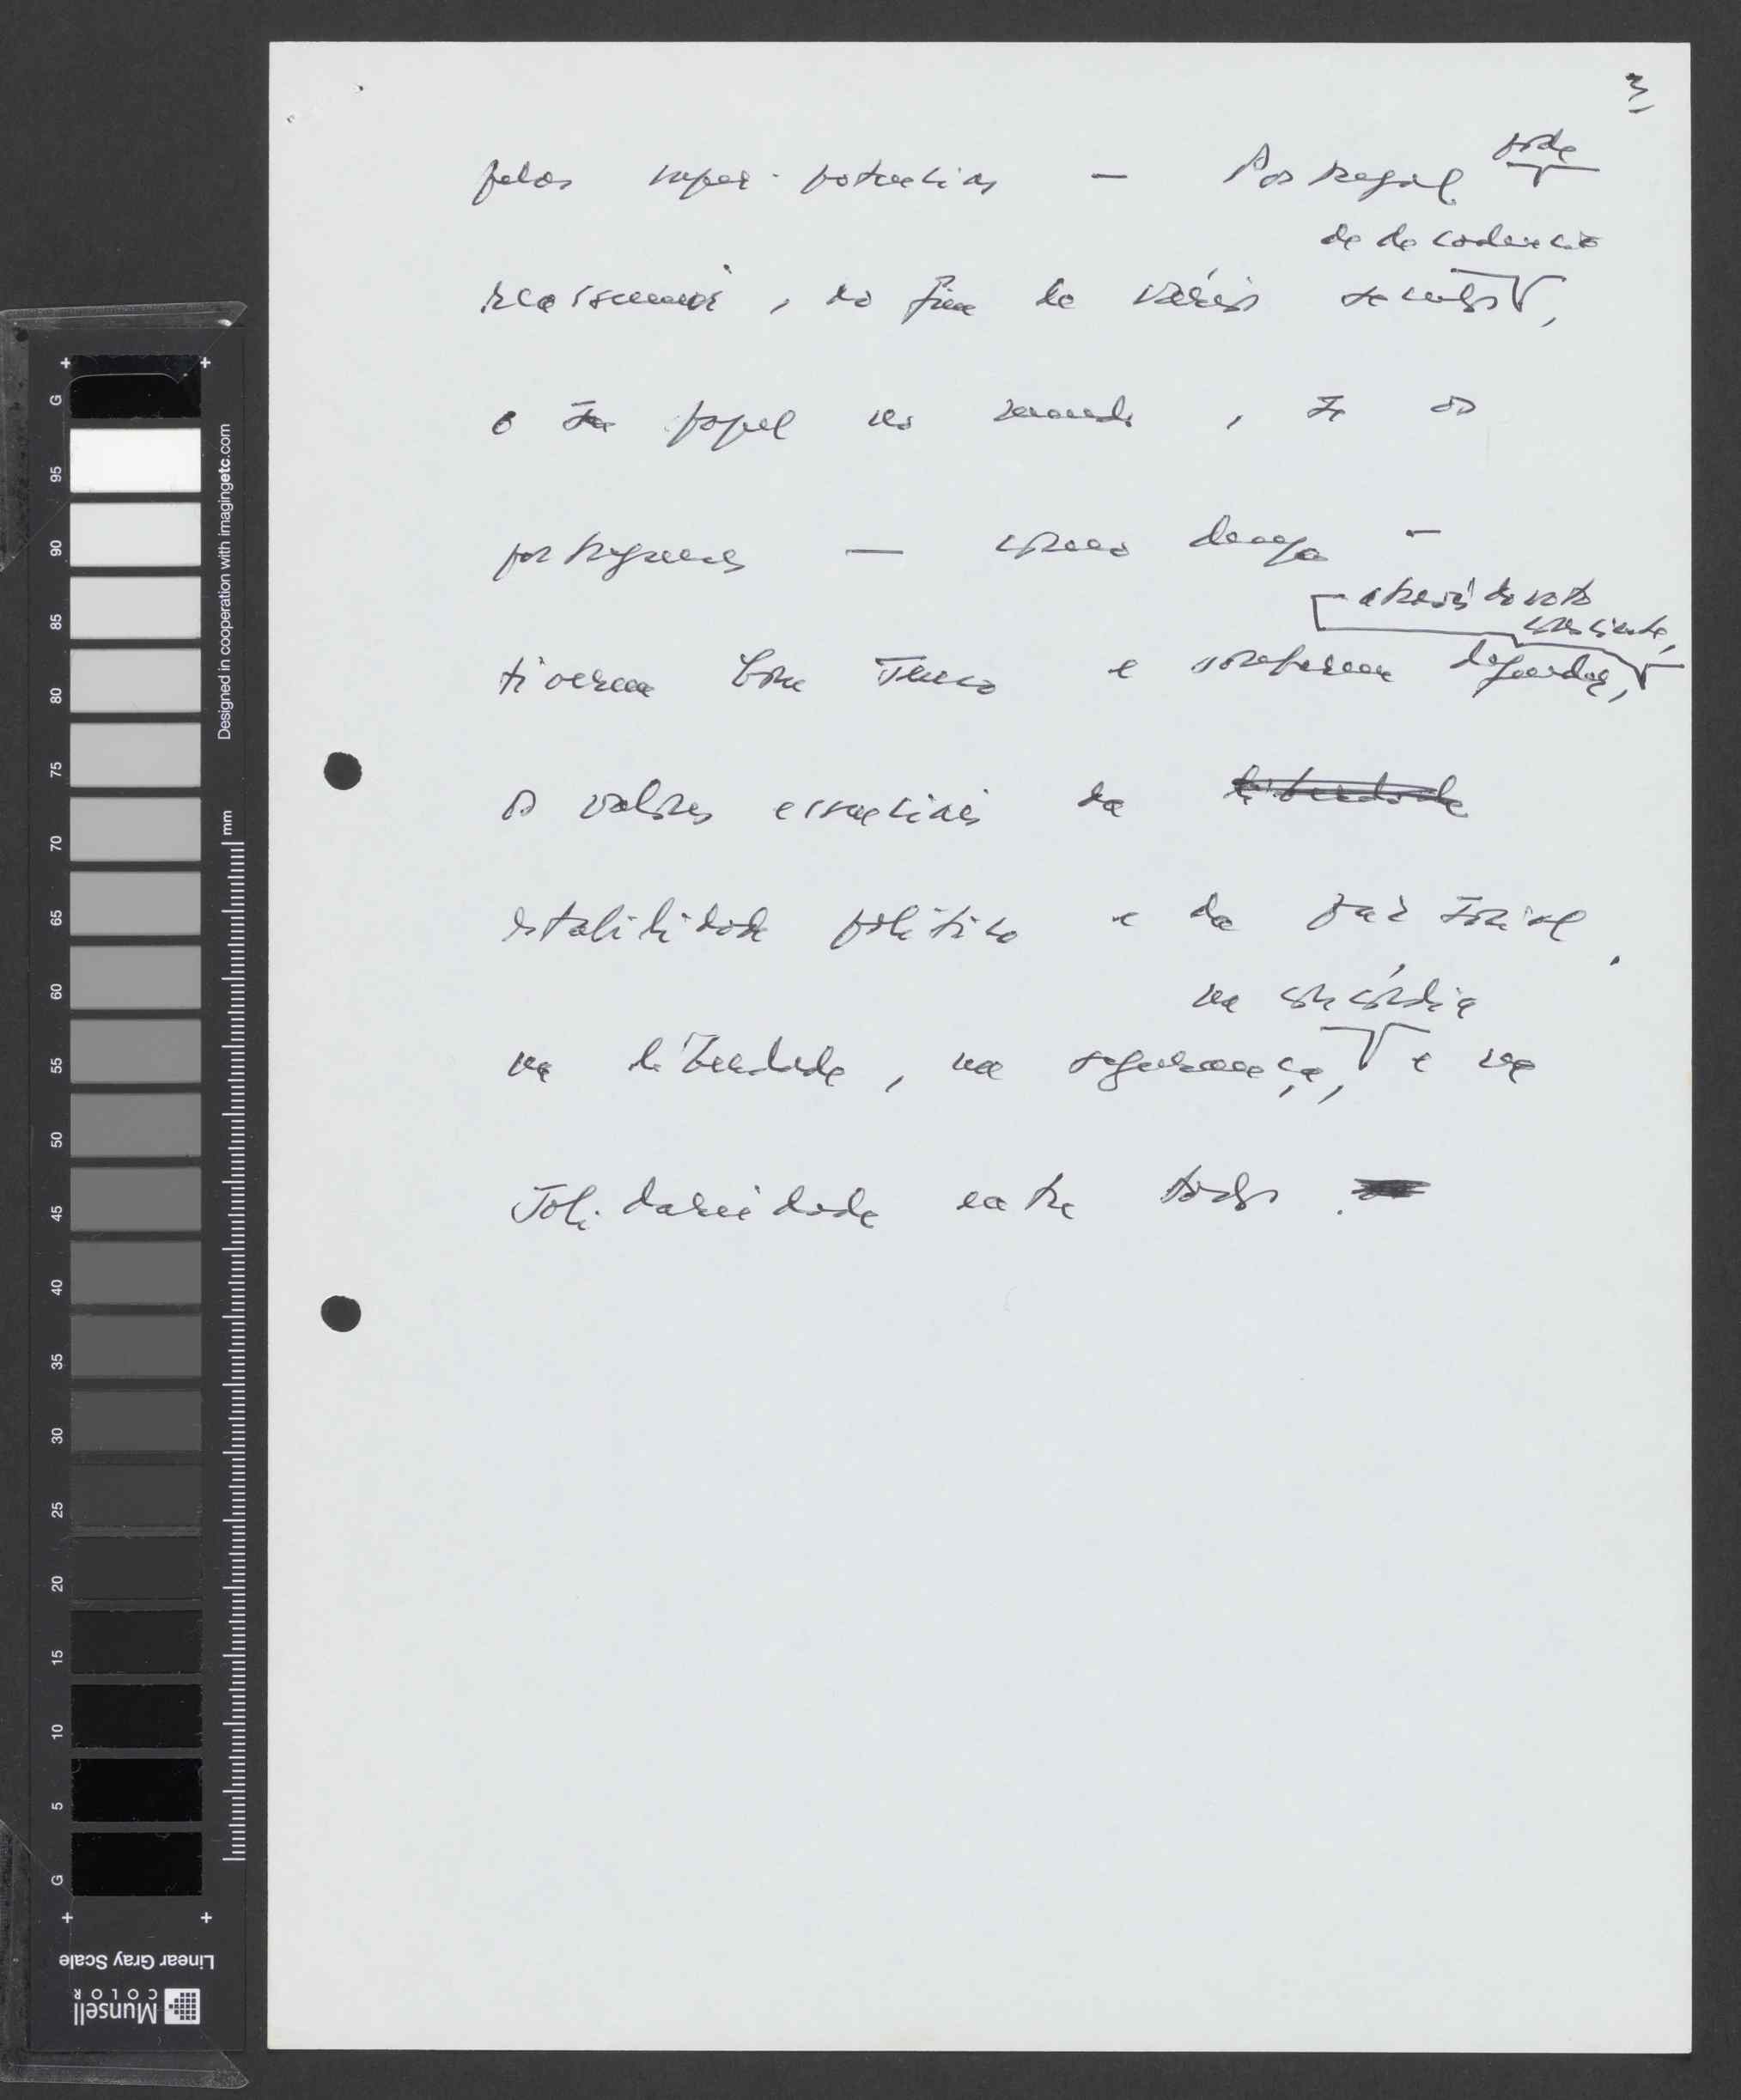 3
pode
pelas super-potencias — Portugal
de decadencia
reassumir, ao fim de vários seculos,
o seu papel no mundo, se os
portugueses —
através do voto
consciente,
tiverem bom senso e souberem defender,
os valores essenciais da liberdade
estabilidade política e da paz social.
na concórdia
na liberdade, na segurança, e na
solidariedade entre todos.
G
95
90
85
80
75
70
65
60
55
50
45
40
35
30
25
20
15
10
5
G
mm
Designed in cooperation with imagingetc.com
Linear Gray Scale
Munsell
COLOR